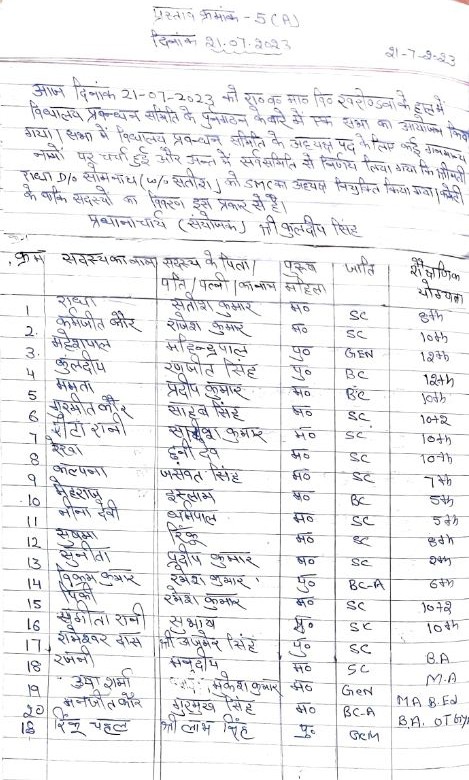 प्रस्ताव क्रमांक - 5(A)
दिनांक 21.07.2023
21-7-2023
आज दिनांक 21-07-2023 को रा०व०मा०वि० के हाल में
विद्यालय प्रबन्धन समिति के पुनर्गठन के बारे में एक सभा का आयोजन किया
गया। सभा में विद्यालय प्रबन्धन समिति के अध्यक्ष पद के लिए कई गणमान्य
नामों पर चर्चा हुई और अन्त में सर्वसम्मति से निर्णय लिया गया कि श्रीमती
राधा D/o सोमनाथ (w/o सतीश) को SMC का अध्यक्ष नियुक्त किया गया। कमेटी
के बाकि सदस्यों का विवरण इस प्रकार से है।
प्रधानाचार्य (संयोजक) श्री कुलदीप सिंह
क्रम सदस्य का नाम सदस्य के पिता/ पुरुष जाति शैक्षणिक
पति/पत्नी/का नाम महिला योग्यता
1 राधा सतीश कुमार म० SC 8th
2. कर्मजीत कौर राजेश कुमार म० SC 10th
3. महेशपाल महिन्द्रपाल पु० GEN 12th
4 कुलदीप रणजीत सिंह पु० BC 12th
5 ममता प्रदीप कुमार म० BC 10th
6 गुरमीत कौर साहेब सिंह म० SC 10+2
7 रीटा रानी कुमार म० SC 10th
8 रेखा देव म० SC 10th
9 कल्पना जसवंत सिंह म० SC 7th
10 इस्लाम म० BC 5th
11 मीना देवी धर्मपाल म० SC 5th
12 सुषमा रिंकू म० SC 8th
13 सुनीता प्रदीप कुमार म० SC 9th
14 विक्रम कुमार रमेश कुमार पु० BC-A 6th
15 पिंकी रमेश कुमार म० SC 10+2
16 सुनीता रानी सुभाष म० SC 10th
17. रामेश्वर दास श्री अजमेर सिंह पु० SC
18 रजनी मनदीप म० SC B.A
19 उषा शर्मा मुकेश कुमार म० Gen M.A
20 मनजीत कौर गुरमुख सिंह म० BC-A MA B.Ed
18 रिंकू चहल श्री लाभ सिंह पु० Gen B.A. OT